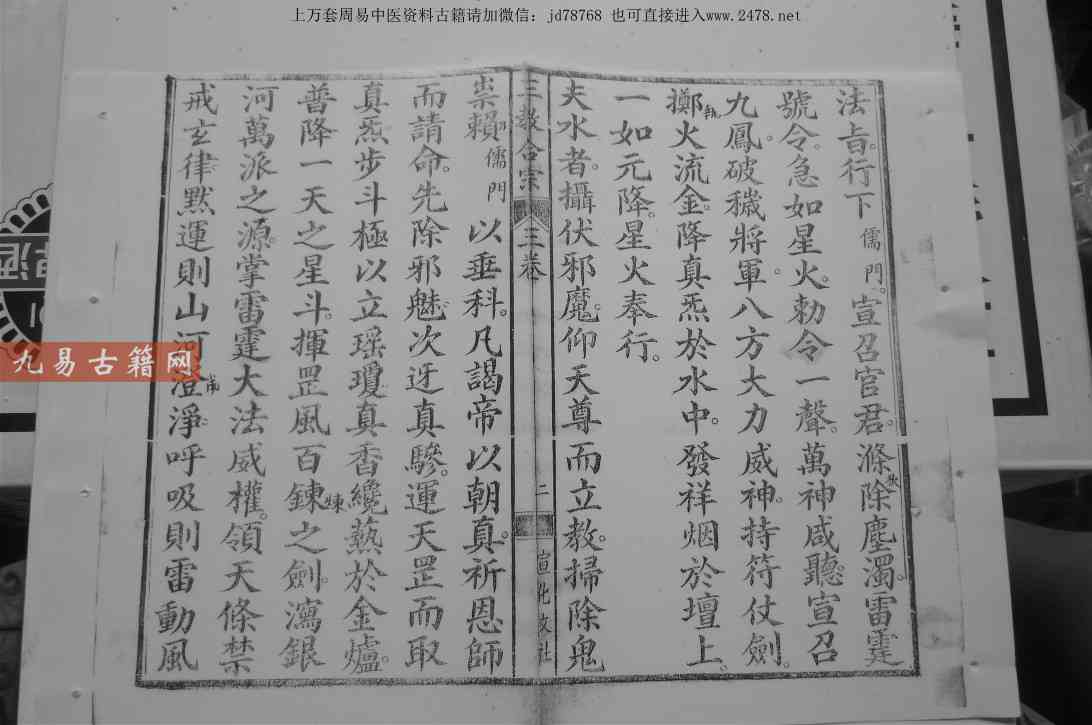 上万套周易中医资料古籍请加微信：jd78768 也可直接进入www.2478.net
法旨。行下儒門。宣召官君。滌除塵濁。雷霆
號令。急如星火。勅令一聲。萬神咸聽。宣召
九鳳破穢將軍。八方大力威神。持符仗劍。
擲火流金。降真炁於水中。發祥烟於壇上。
一如元降。星火奉行。
夫水者。攝伏邪魔。仰天尊而立教。掃除鬼
三教合宗 三卷 二 宣化文社
祟。賴儒門以垂科。凡謁帝以朝真。祈恩師
而請命。先除邪魅。次迓真驂。運天罡而取
真炁步斗極以立瑶瓊真香纔爇於金爐。
普降一天之星斗。揮罡風百鍊之劍。瀉銀
河萬派之源。掌雷霆大法威權。領天條禁
戒玄律默運則山河澄淨呼吸則雷動風
九易古籍网